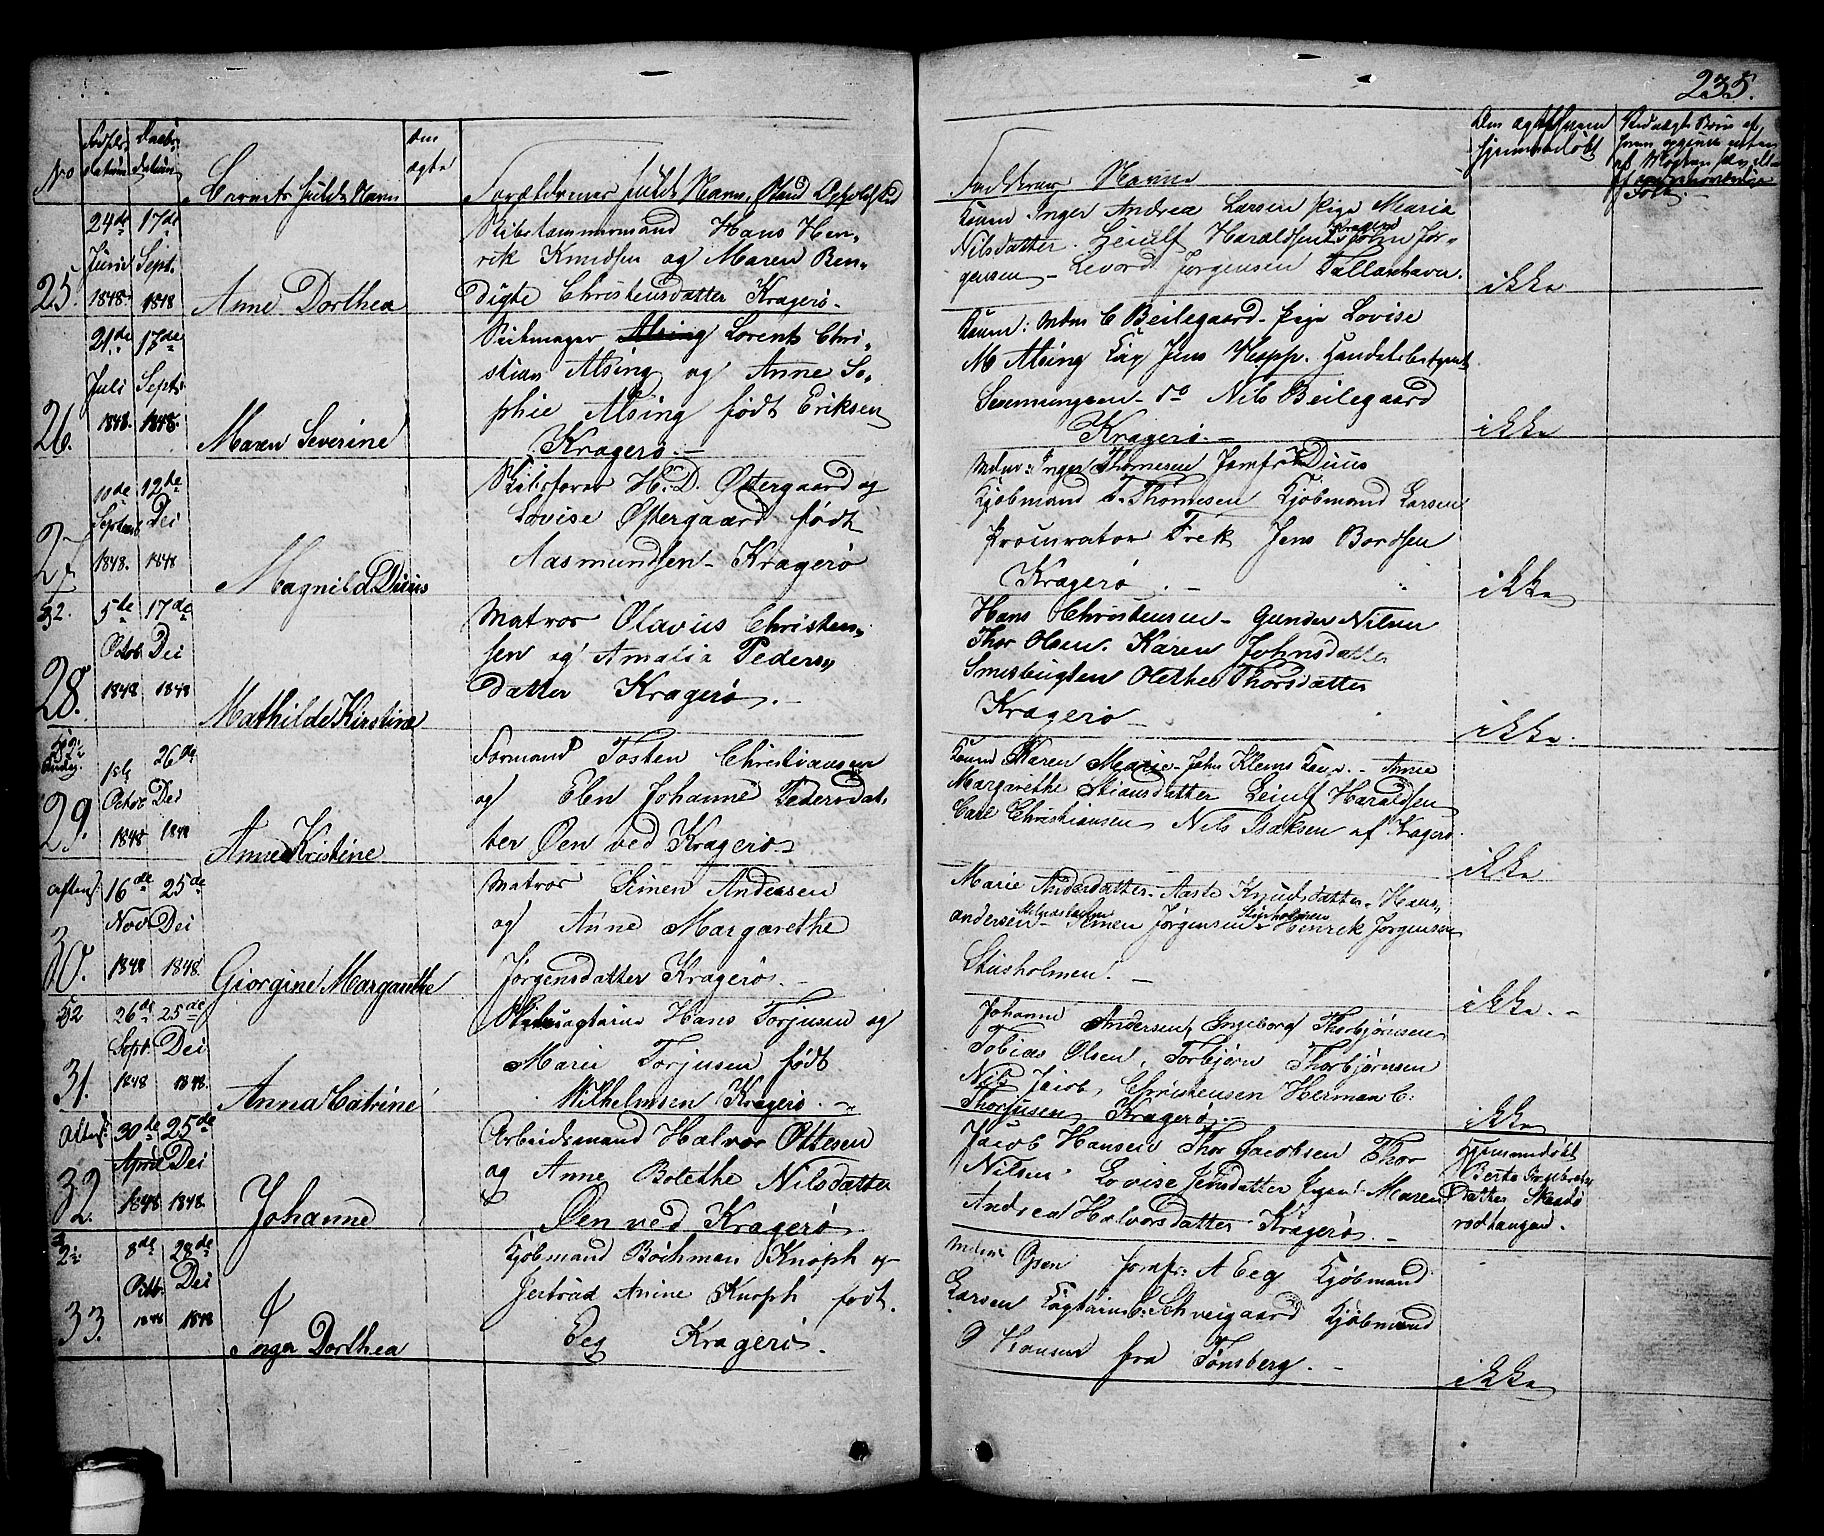 235.
No
Fødsels datum
Daabs datum
Barnets fulde Navn
Om ægte
Forældrenes fulde Navn, Stand Opholdsted
Faddernes Navne
Om ægte hjemmedøbt
25.
24de Juni 1848
17de Sept. 1848
Anne Dorthea
Skibstømmermand Hans Hen-
rik Knudsen og Maren Ben-
digte Christensdatter Kragerø
Inger Andrea Larsen Pige Maria
Nilsdatter. Leiulf Haraldsen Kragerø John Jør-
gensen - Levord Jørgensen Tallakshavn.
ikke
26.
21de Juli 1848.
17de Sept. 1848.
Maren Severine
Alsing Lorents Chri-
stian Alsing og Anne So-
phie Alsing født Eriksen
Kragerø.
Mdm C Beilegaard Pige Lovise
M Alsing Jens Hopp.
do Nils Beilegaard
Kragerø.
ikke
27
10de September 1848.
12te Dei 1848
Magnild Duus
Skibsfører H. D. Østergaard og
Lovise Østergaard født
Aasmundsen - Kragerø
Mdm: Inger Thomesen Jomfr Duus
Kjøbmand Thomesen Kjøbmand Larsen
Procurator Frek Jens Bordsen
Kragerø
ikke
28.
5de Octob. 1848
17de Dei 1848
Mathilde Kirstine
Matros Olavus Christen-
sen og Amalia Peders-
datter Kragerø.
Hans Christensen - Gunder Nilsen
Thor Olsen. Karen Johnsdatter
Smedsbugten Olethe Thorsdatter
Kragerø
ikke.
29.
1ste Octbr 1848
26de Dei 1848
Anne Kristine
Formand Tosten Christiansen
og Elen Johanne Pedersdat-
ter Øen ved Kragerø
Karen Marie John Klems Anne
Margarethe Stiansdatter Leiulf Haraldsen
Carl Christiansen Nils Isaksen af Kragerø.
ikke
30.
16de Nov 1848
25de Dei 1848.
Giorgine Margarethe
Matros Simen Andersen
og Anne Margarethe
Jørgensdatter Kragerø
Marie Andersdatter - Aaste Knudsdatter - Hans
Andersen Simen Jørgensen Henrik Jørgensen
ikke.
31.
26de Sept. 1848
25de Dei 1848.
Anna Catrine
Hans Torjusen og
Marie Torjusen født
Wilhelmsen Kragerø.
Johanne Andersen, Ingeborg Thorbjørnsen
Tobias Olsen, Torbjørn Thorbjørnsen
Nils Jacob, Christensen Herman C.
Thorjusen Kragerø
ikke
32.
30de April 1848
25de Dei 1848.
Johanne
Arbeidsmand Halvor Ottesen
og Anne Bolethe Nilsdatter
Øen ved Kragerø
Jacob Hansen Thor Jacobsen Thor
Nilsen. Lovise Jensdatter Maren
Andrea Halvorsdatter Kragerø.
Hjemmedøbt
Berte Ingebrets
Datter Skaadø
rødtangen.
33.
8de Octb. 1848
28de Dei 1848
Inger Dorthea
Kjøbmand Bochman Knoph og
Jertrud Anine Knoph født
Eeg Kragerø.
Mdm Opsen Jomfr: A Eeg Kjøbmand
Larsen Schveigaard Kjøbmand
P Hansen fra Tønsberg.
ikke